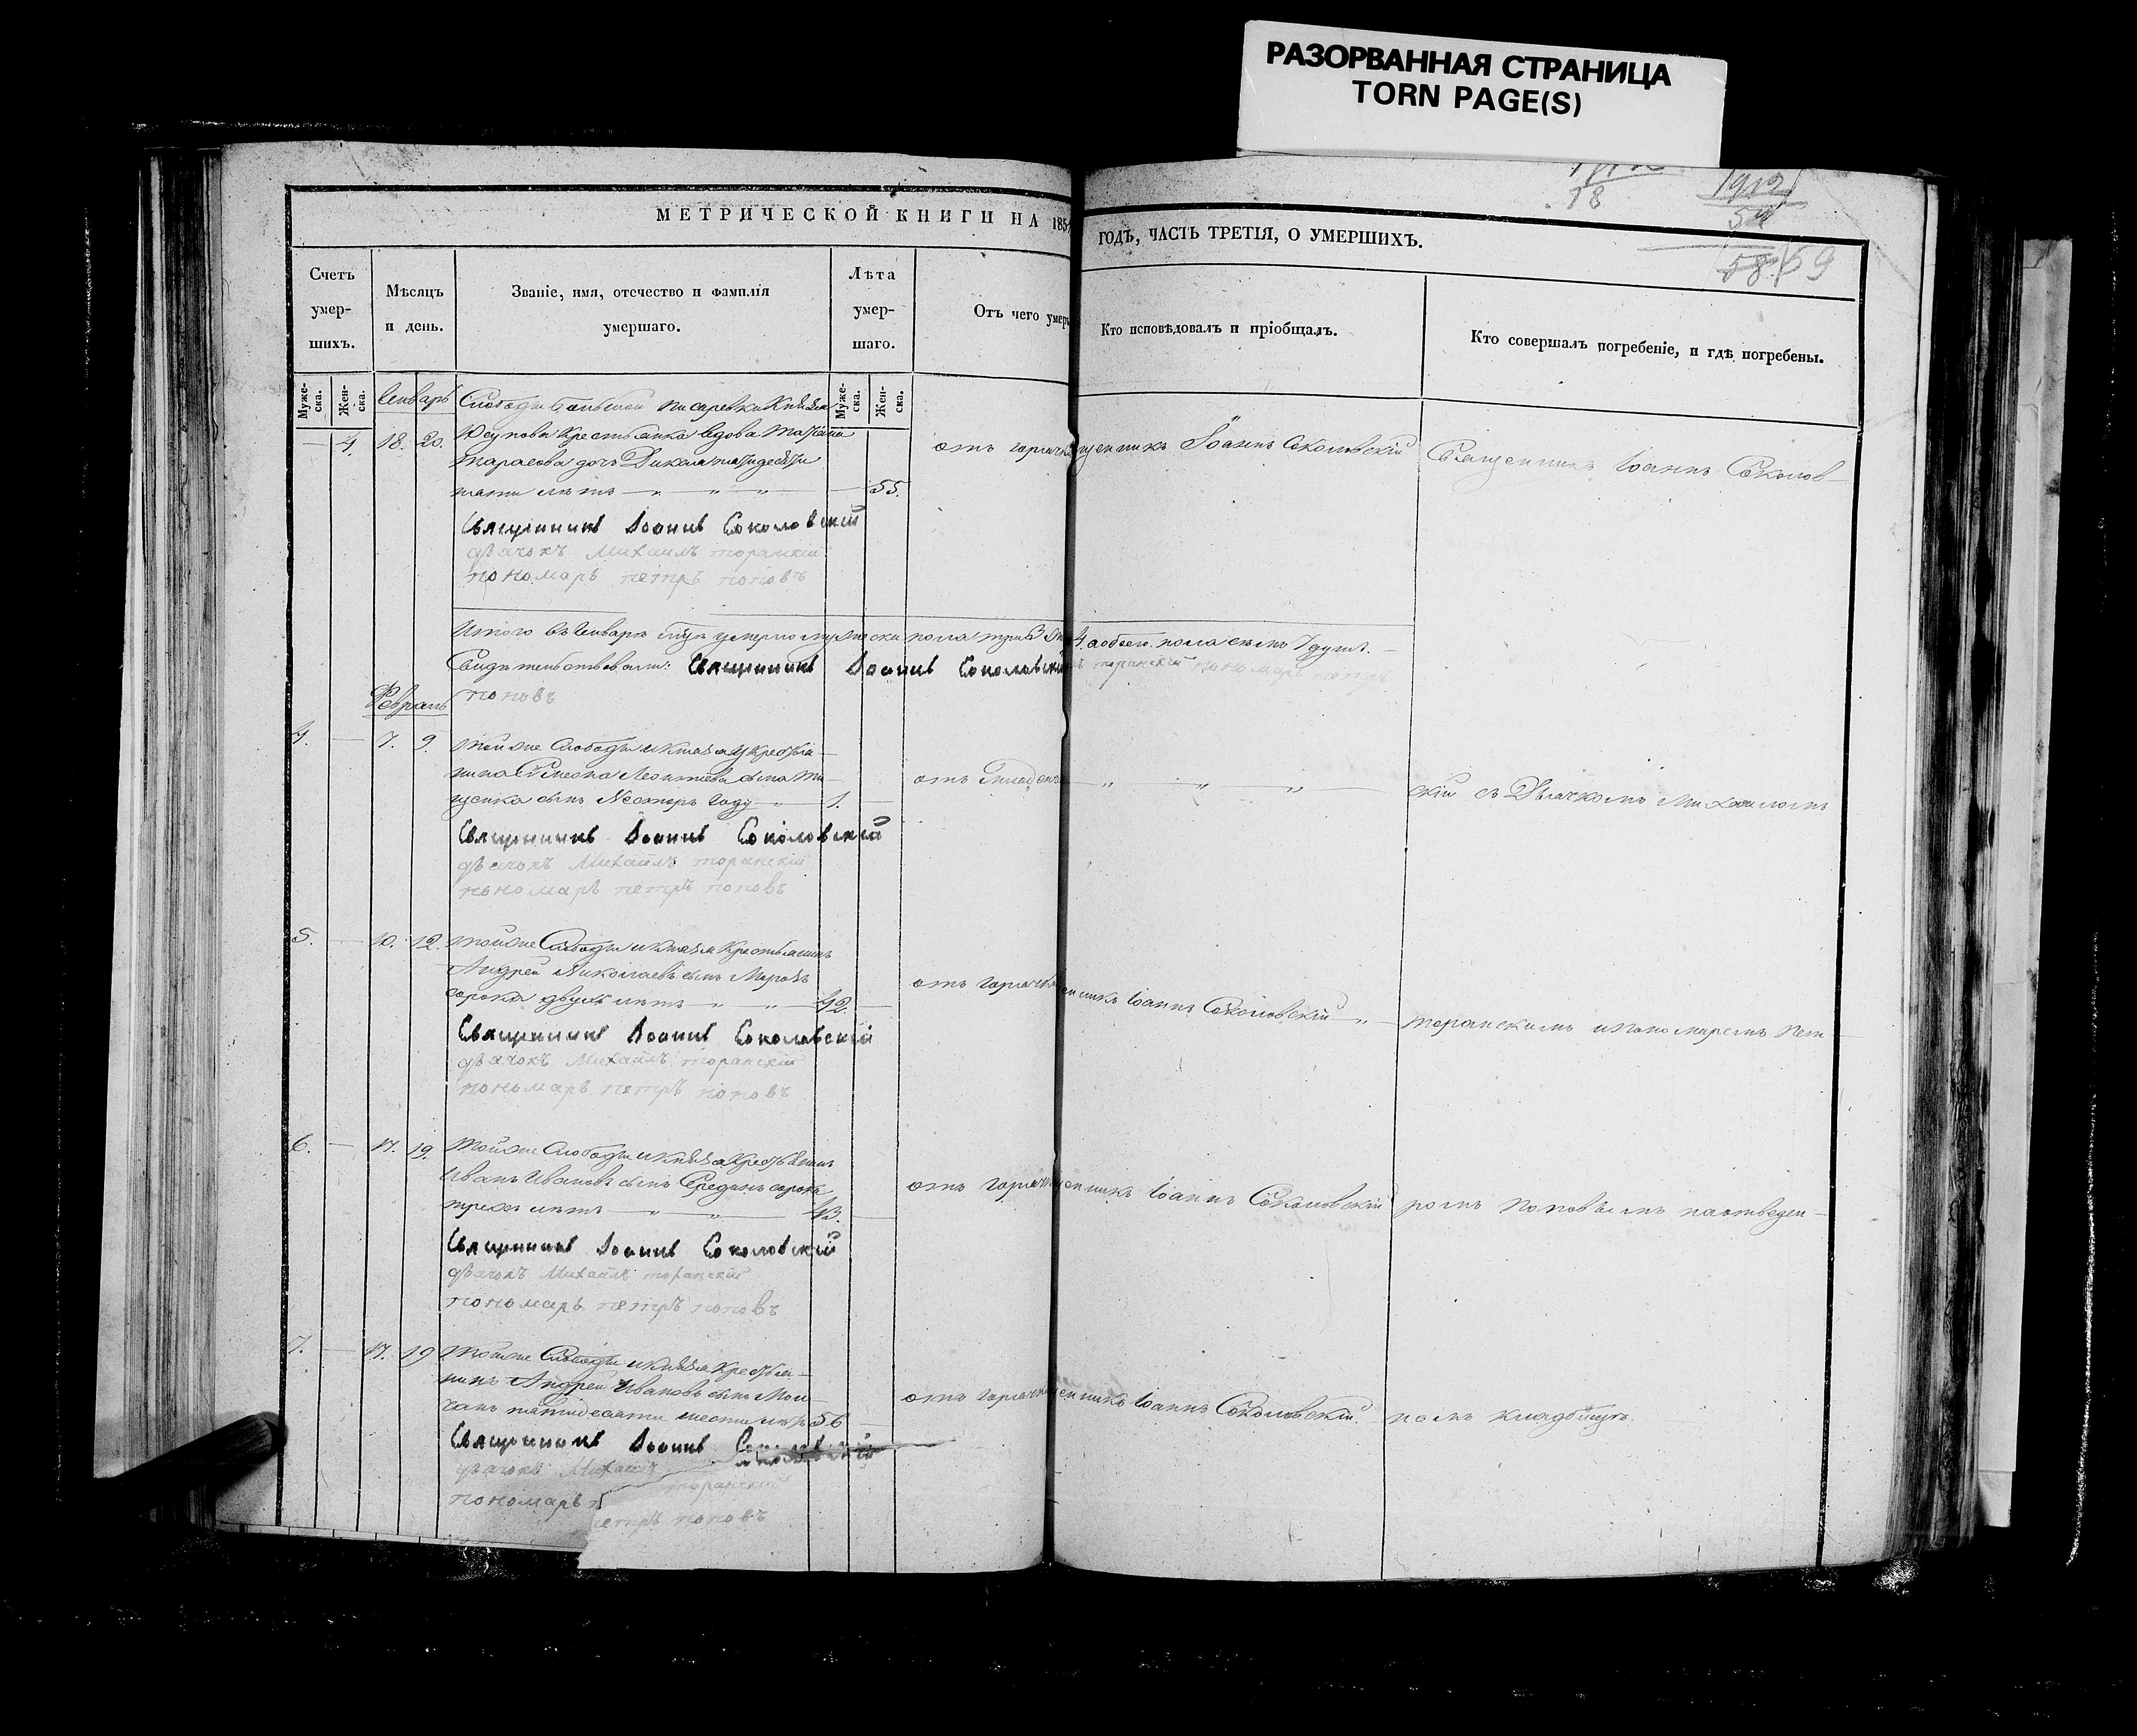 РАЗОРВАННАЯ СТРАНИЦА
TORN PAGE(S)
18
54
58 59
МЕТРИЧЕСКОЙ КНИГИ НА 185
ГОДЪ, ЧАСТЬ ТРЕТІЯ, О УМЕРШИХЪ.
Счетъ умер- шихъ.
Мѣсяцъ и день.
Званіе, имя, отечество и фамилія умершаго.
Лѣта умер- шаго.
Отъ чего умеръ
Кто исповѣдовалъ и пріобщалъ.
Кто совершалъ погребеніе, и гдѣ погребены.
Муже- ска.
Жен- ска.
Муже- ска.
Жен- ска.
Генварь
Слободы Большой Писаревки Князя
— 4. 18. 20. Юсупова крестьянка вдова Татіана
Тарасова дочь Дикая пятидесяти
пяти лѣтъ — 55.
отъ горячки
щенникъ Іоаннъ Соколовскій
Священникъ Іоаннъ Соколов-
Священникъ Іоаннъ Соколовскій
дьячокъ Михаилъ торанскій
пономарь петръ поповъ
Итого въ Генварѣ умерло мужеска пола три 3 4. а обоего пола семь 7 душъ.
Свидѣтельствовали: Священникъ Іоаннъ Соколовскій торанскій пономарь петръ
поповъ
Февраль
4. — 7. 9. Той же Слободы и князя крестья-
нина Симеона Леонтіева сына
сынъ Несторъ году — 1. —
отъ младенч
скій съ Дьячкомъ Михаиломъ
Священникъ Іоаннъ Соколовскій
дьячокъ Михаилъ торанскій
пономарь петръ поповъ
5. — 10. 12. Той же Слободы и князя крестьянинъ
Андрей Николаевъ сынъ Морозъ
сорока двухъ лѣтъ — 42. —
отъ горячки
енникъ Іоаннъ Соколовскій —
торанскимъ и пономаремъ Пет-
Священникъ Іоаннъ Соколовскій
дьячокъ Михаилъ торанскій
пономарь петръ поповъ
6. — 17. 19. Той же Слободы и князя крестьянинъ
Иванъ Ивановъ сынъ Срединъ сорока
трехъ лѣтъ — 43. —
отъ горячк
щенникъ Іоаннъ Соколовскій
ромъ Поповымъ на отведен-
Священникъ Іоаннъ Соколовскій
дьячокъ Михаилъ торанскій
пономарь петръ поповъ
7. — 17. 19 Той же Слободы и князя крестья-
нинъ Андрей Ивановъ сынъ Мол-
чанъ пятидесяти шести лѣтъ 56 —
отъ горячки
щенникъ Іоаннъ Соколовскій.
номъ кладбищѣ.
Священникъ Іоаннъ Соколовскій
дьячокъ Михаилъ торанскій
пономарь петръ поповъ